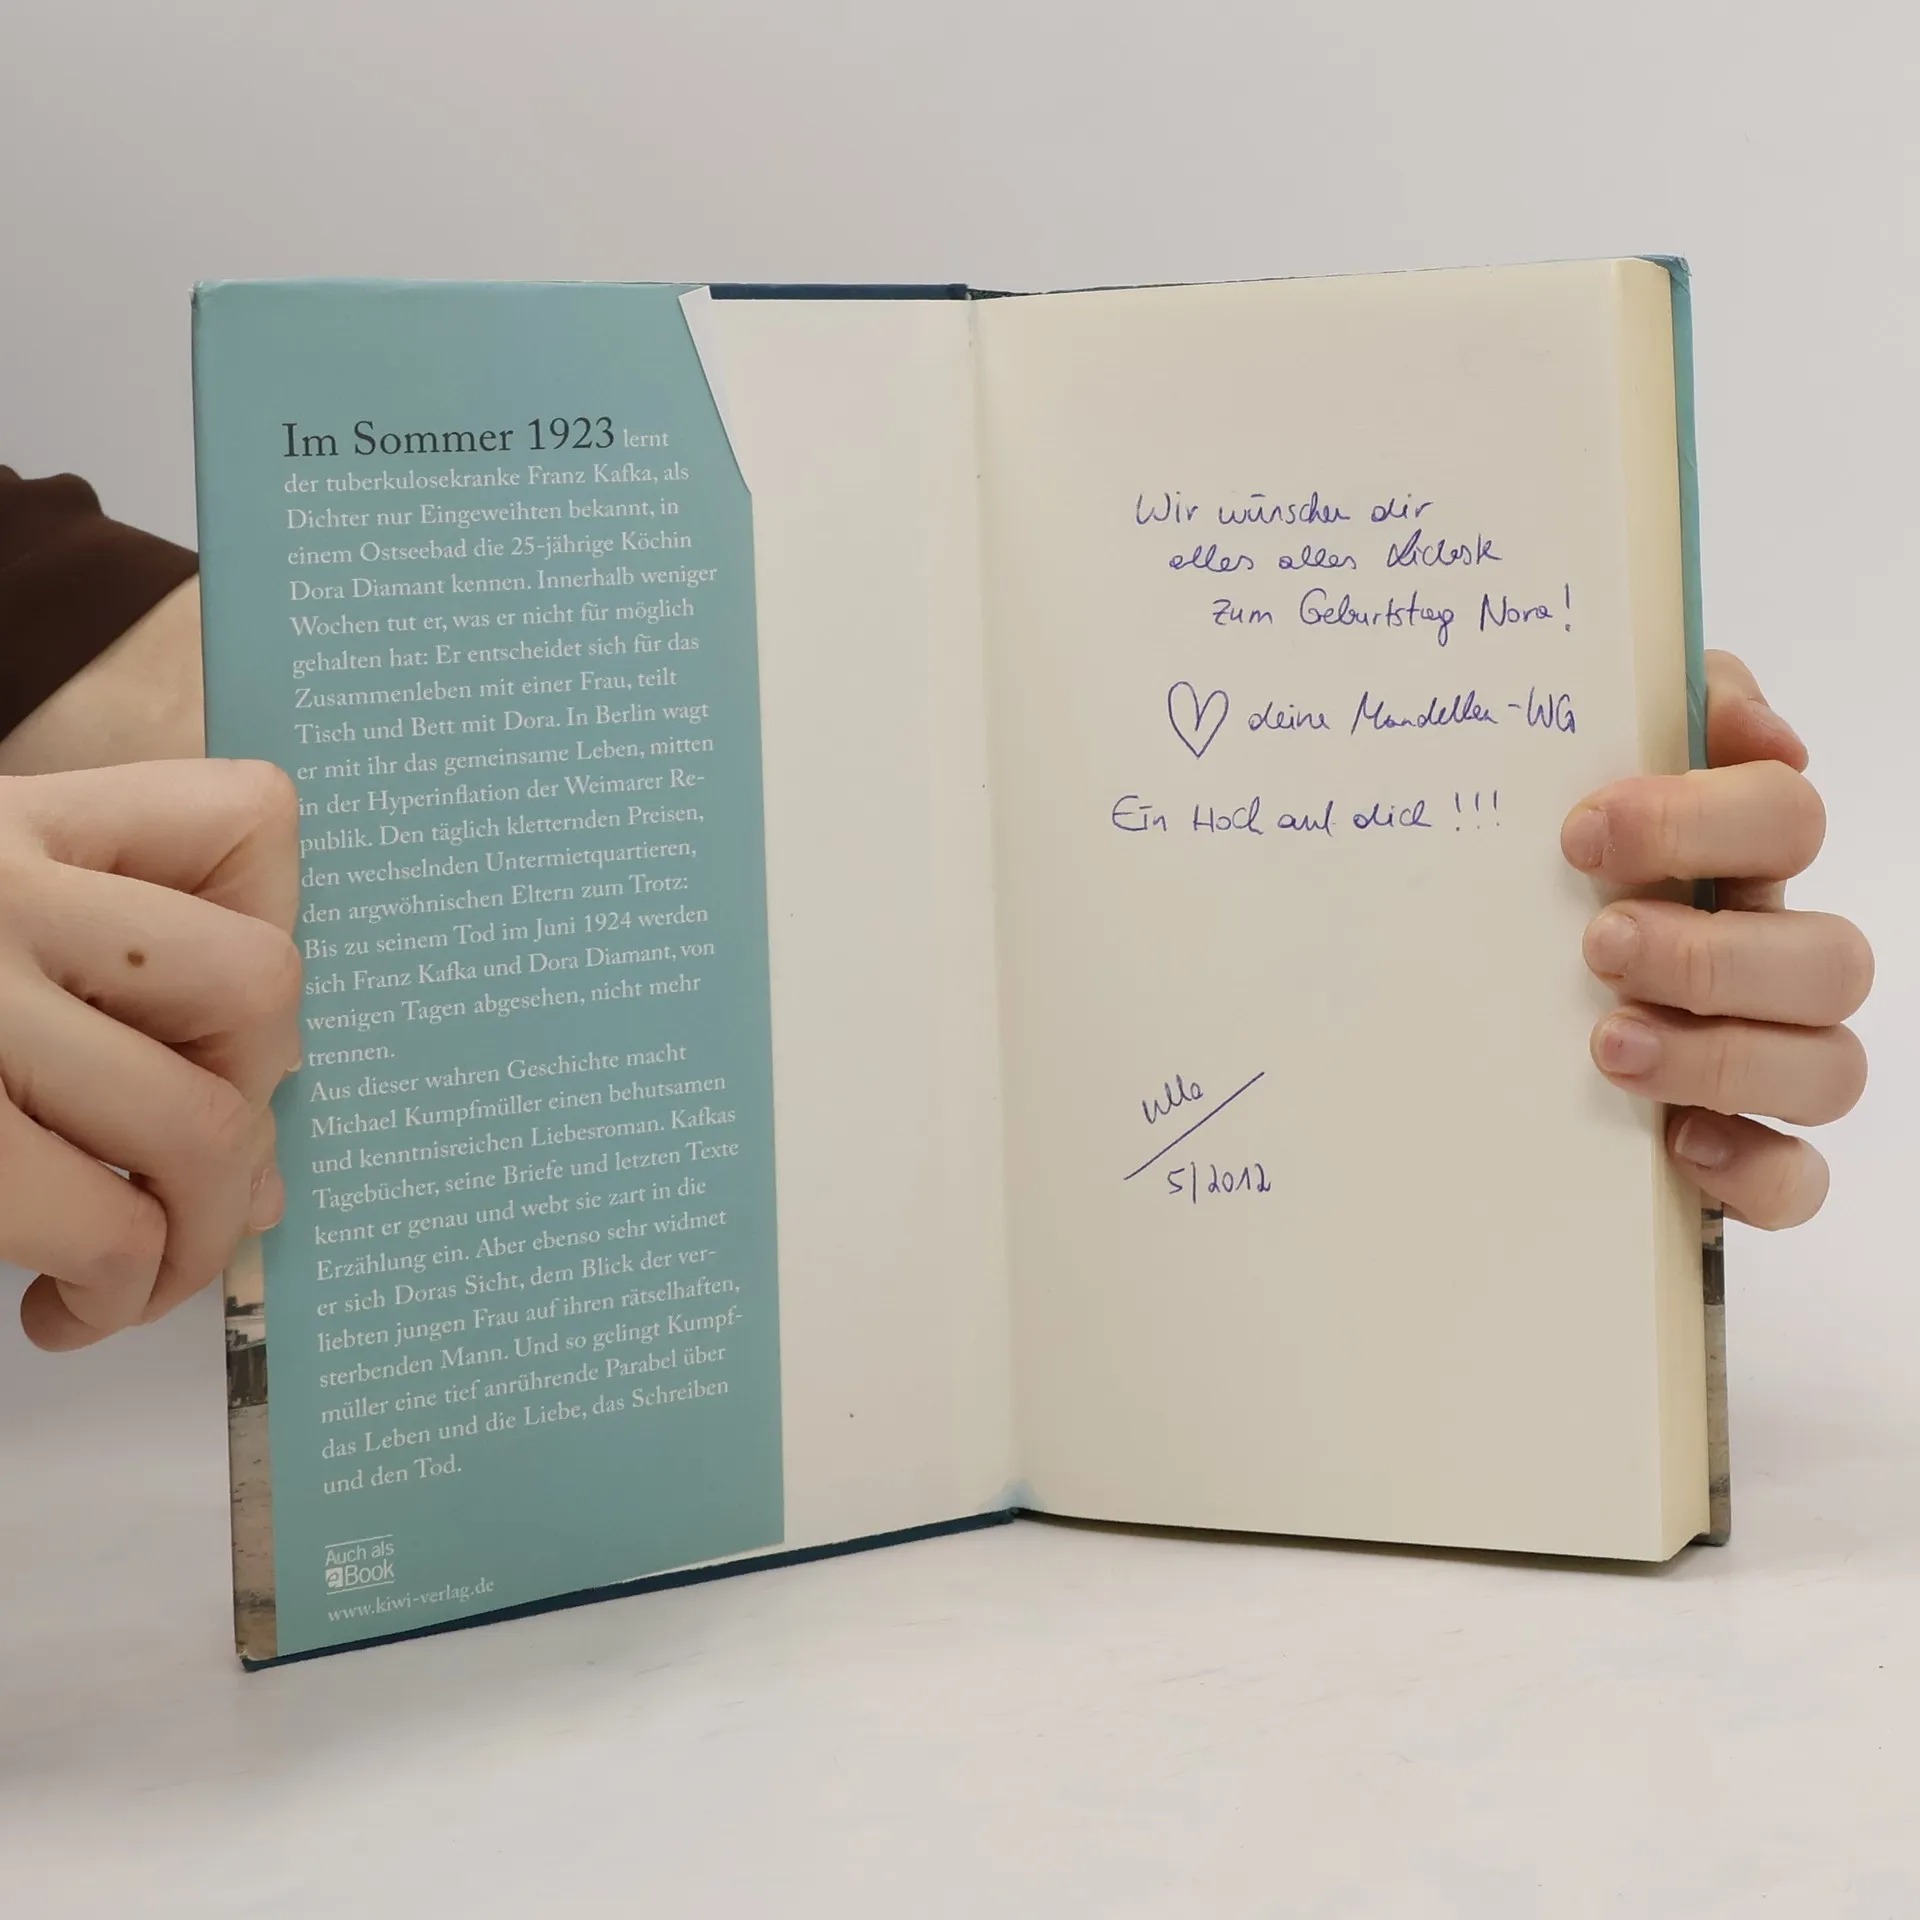 Im Sommer 1923 lernt
der tuberkulosekranke Franz Kafka, als
Dichter nur Eingeweihten bekannt, in
einem Ostseebad die 25-jährige Köchin
Dora Diamant kennen. Innerhalb weniger
Wochen tut er, was er nicht für möglich
gehalten hat: Er entscheidet sich für das
Zusammenleben mit einer Frau, teilt
Tisch und Bett mit Dora. In Berlin wagt
er mit ihr das gemeinsame Leben, mitten
in der Hyperinflation der Weimarer Re-
publik. Den täglich kletternden Preisen,
den wechselnden Untermietquartieren,
den argwöhnischen Eltern zum Trotz:
Bis zu seinem Tod im Juni 1924 werden
sich Franz Kafka und Dora Diamant, von
wenigen Tagen abgesehen, nicht mehr
trennen.
Aus dieser wahren Geschichte macht
Michael Kumpfmüller einen behutsamen
und kenntnisreichen Liebesroman. Kafkas
Tagebücher, seine Briefe und letzten Texte
kennt er genau und webt sie zart in die
Erzählung ein. Aber ebenso sehr widmet
er sich Doras Sicht, dem Blick der ver-
liebten jungen Frau auf ihren rätselhaften,
sterbenden Mann. Und so gelingt Kumpf-
müller eine tief anrührende Parabel über
das Leben und die Liebe, das Schreiben
und den Tod.
Auch als
eBook
www.kiwi-verlag.de
Wir wünschen dir
alles alles Liebste
zum Geburtstag Nora!
deine -WG
Ein Hoch auf dich !!!
ulla
5/2012